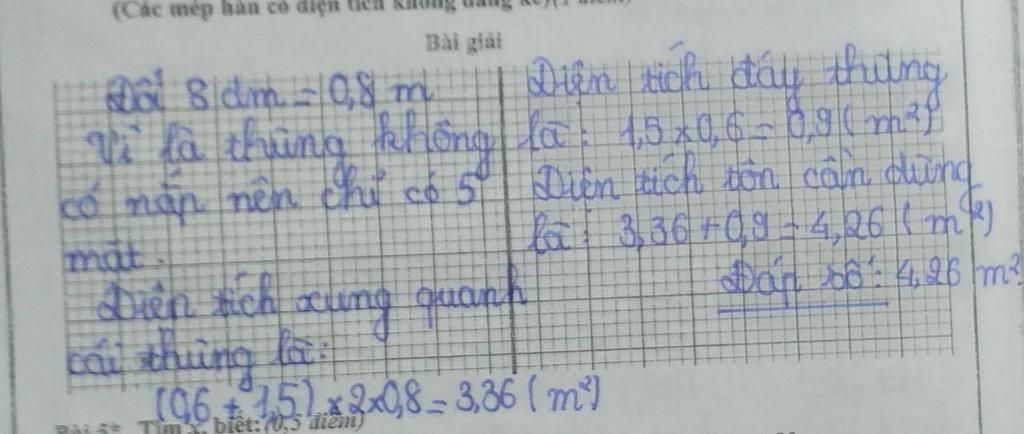 (Các mép hàn có diện tích không đáng kể)(1 điểm)
Bài giải
Đổi 8 dm = 0,8 m
Vì là thùng không
có nắp nên chỉ có 5
mặt.
Diện tích xung quanh
cái thùng là:
(0,6 + 1,5) × 2 × 0,8 = 3,36 (m²)
Diện tích đáy thùng
là: 1,5 × 0,6 = 0,9 (m²)
Diện tích tôn cần dùng
là: 3,36 + 0,9 = 4,26 (m²)
Đáp số: 4,26 m²
Bài 5* Tìm x, biết: (0,5 điểm)